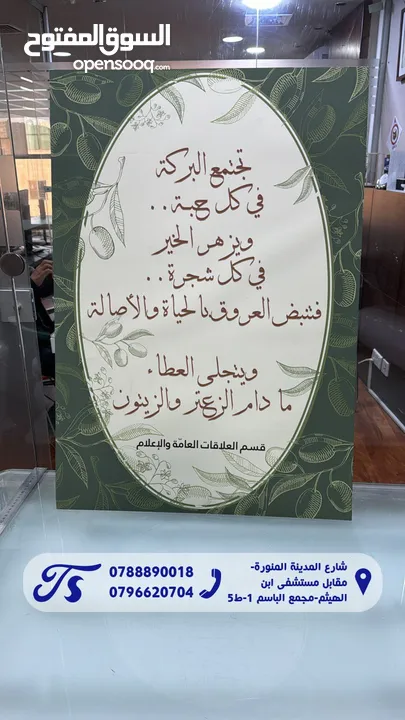 السوق المفتوح
opensooq.com
تجتمع البركة
في كل حبة..
ويزهر الخير
في كل شجرة..
فتنبض العروق بالحياة والأصالة
ويتجلى العطاء
ما دام الزعتر والزيتون
قسم العلاقات العامة والإعلام
شارع المدينة المنورة-
مقابل مستشفى ابن
الهيثم-مجمع الباسم 1-ط5
0788890018
0796620704
TS